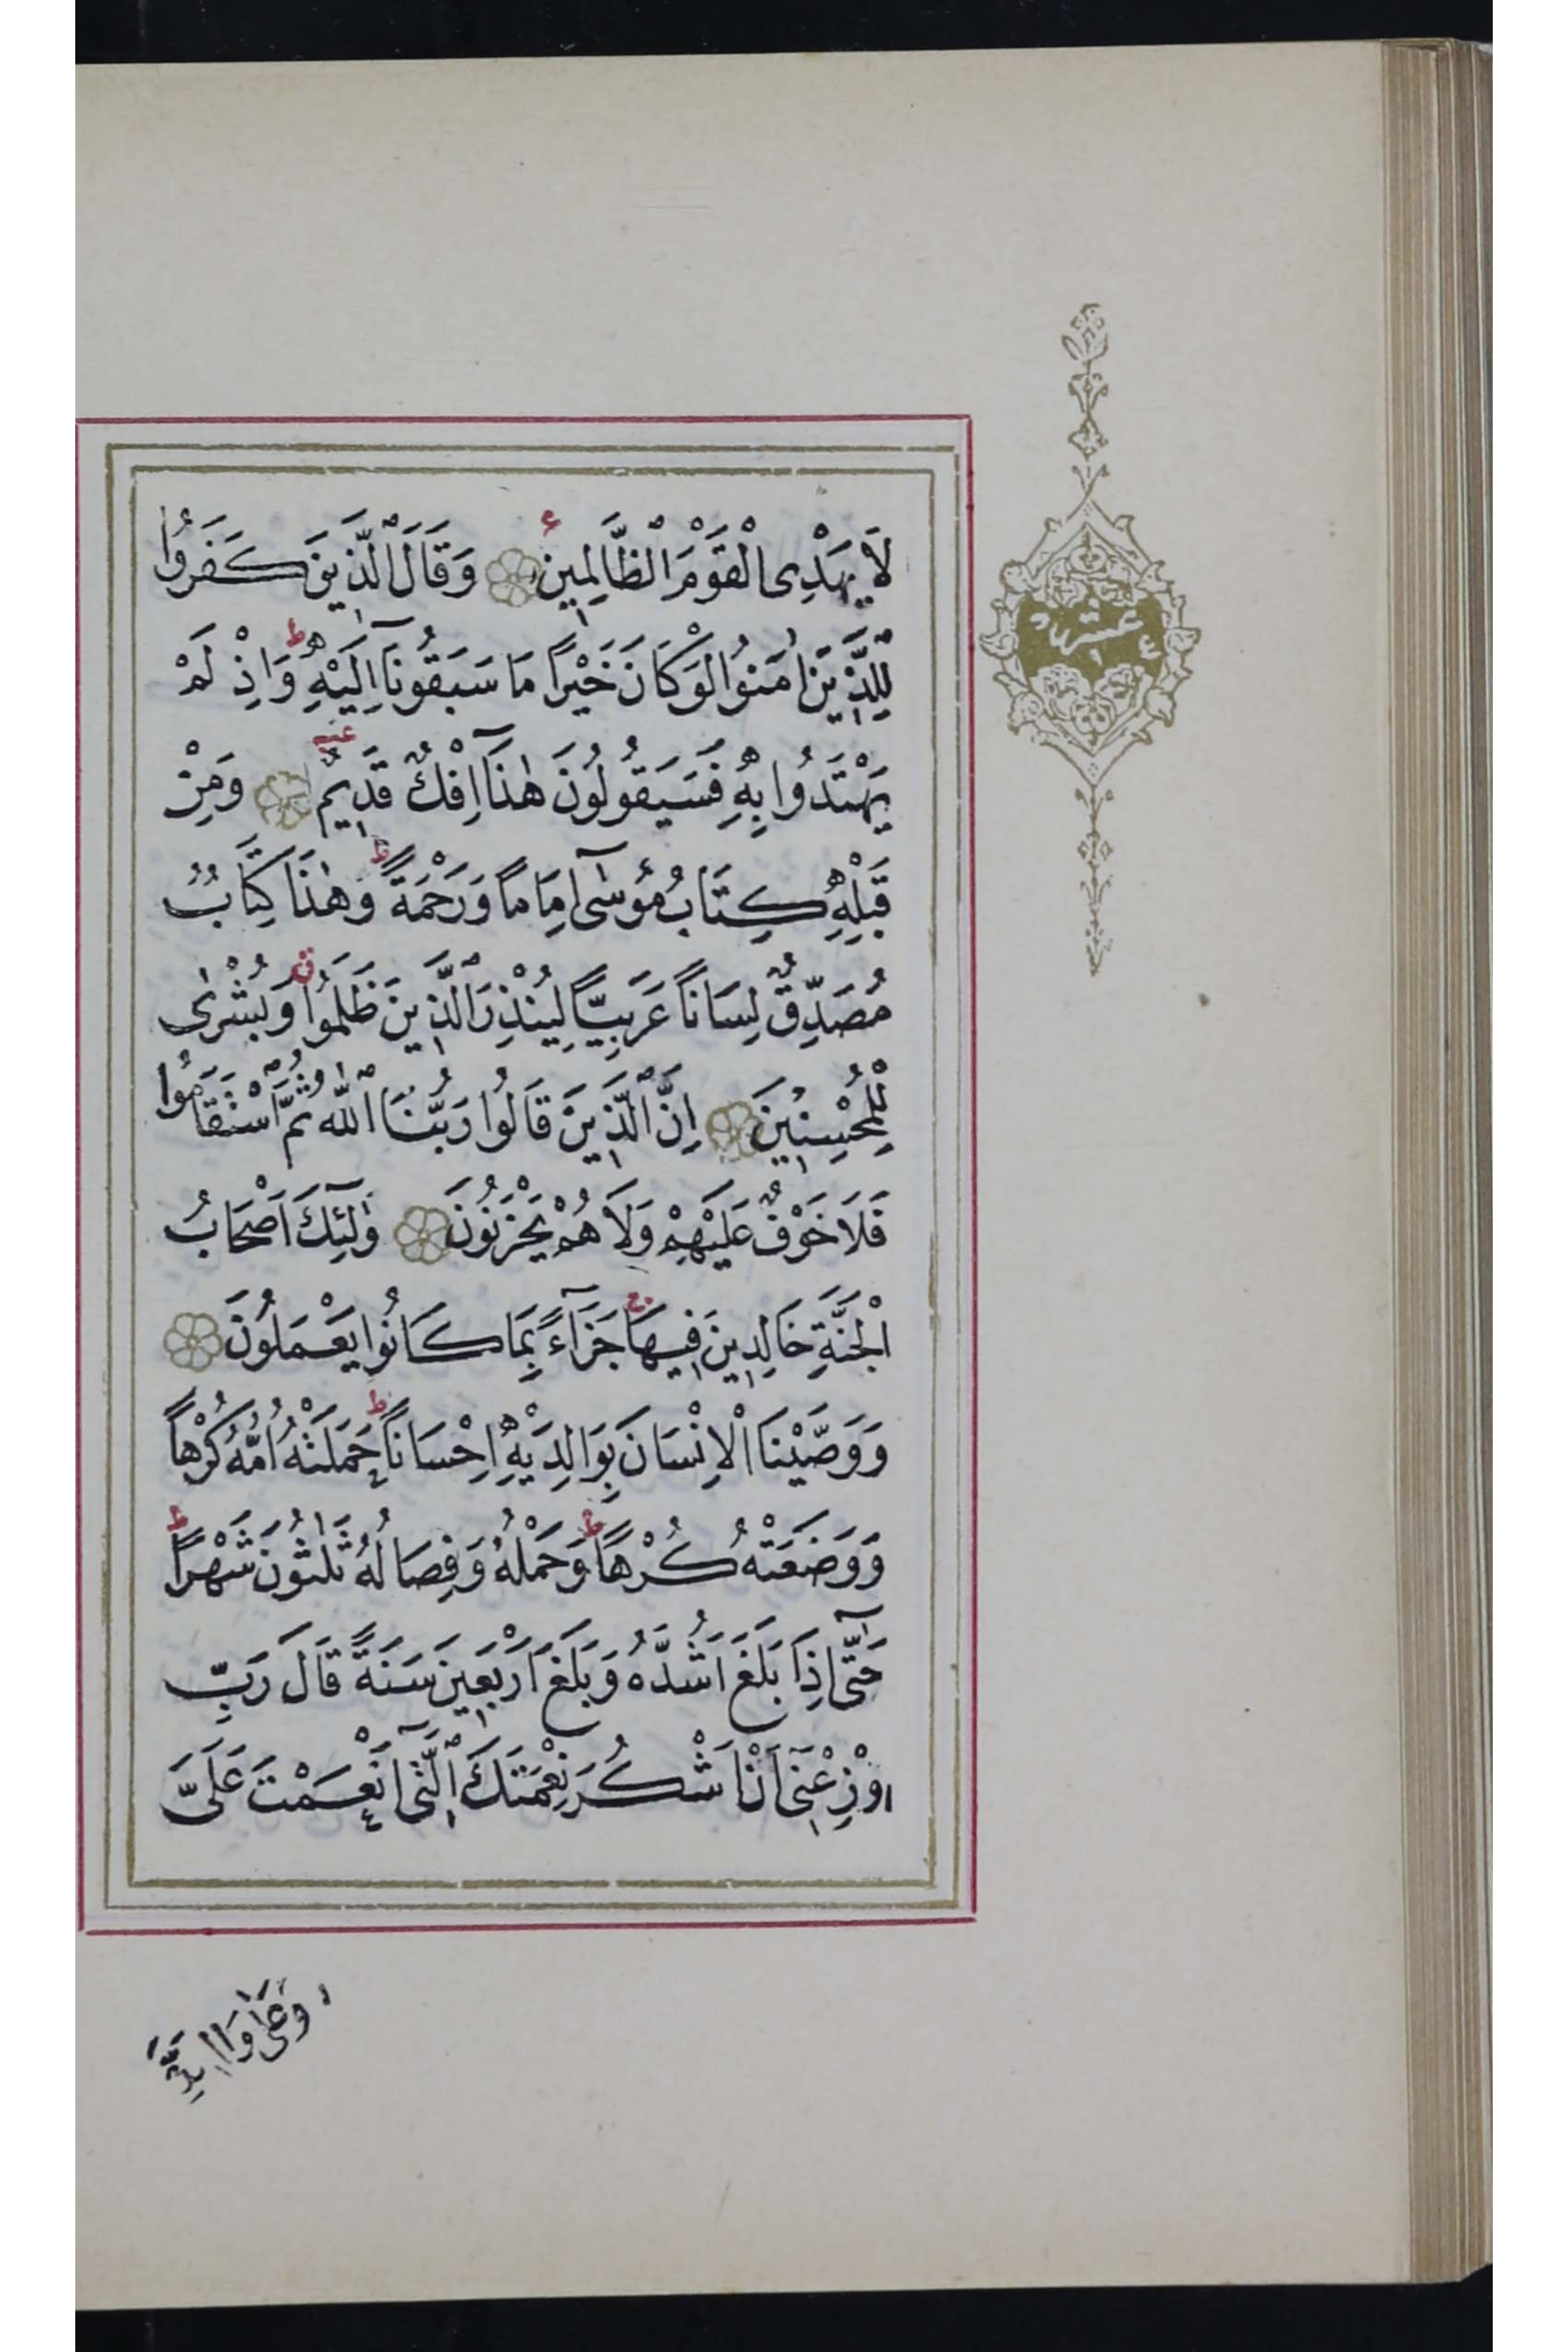 لَا يَهْدِى الْقَوْمَ الظَّالِمِينَ وَقَالَ الَّذِينَ كَفَرُوا
لِلَّذِينَ اٰمَنُوا لَوْ كَانَ خَيْرًا مَا سَبَقُونَا اِلَيْهِ وَاِذْ لَمْ
يَهْتَدُوا بِهِ فَسَيَقُولُونَ هٰذَا اِفْكٌ قَدِيمٌ وَمِنْ
قَبْلِهِ كِتَابُ مُوسٰى اِمَامًا وَرَحْمَةً وَهٰذَا كِتَابٌ
مُصَدِّقٌ لِسَانًا عَرَبِيًّا لِيُنْذِرَ الَّذِينَ ظَلَمُوا وَبُشْرٰى
لِلْمُحْسِنِينَ اِنَّ الَّذِينَ قَالُوا رَبُّنَا اللّٰهُ ثُمَّ اسْتَقَامُوا
فَلَا خَوْفٌ عَلَيْهِمْ وَلَا هُمْ يَحْزَنُونَ وٰلٰٓئِكَ اَصْحَابُ
الْجَنَّةِ خَالِدِينَ فِيهَا جَزَآءً بِمَا كَانُوا يَعْمَلُونَ
وَوَصَّيْنَا الْاِنْسَانَ بِوَالِدَيْهِ اِحْسَانًا حَمَلَتْهُ اُمُّهُ كُرْهًا
وَوَضَعَتْهُ كُرْهًا وَحَمْلُهُ وَفِصَالُهُ ثَلٰثُونَ شَهْرًا
حَتّٰٓى اِذَا بَلَغَ اَشُدَّهُ وَبَلَغَ اَرْبَعِينَ سَنَةً قَالَ رَبِّ
اَوْزِعْنِىٓ اَنْ اَشْكُرَ نِعْمَتَكَ الَّتِىٓ اَنْعَمْتَ عَلَىَّ
وَعَلٰى وَالِدَىَّ